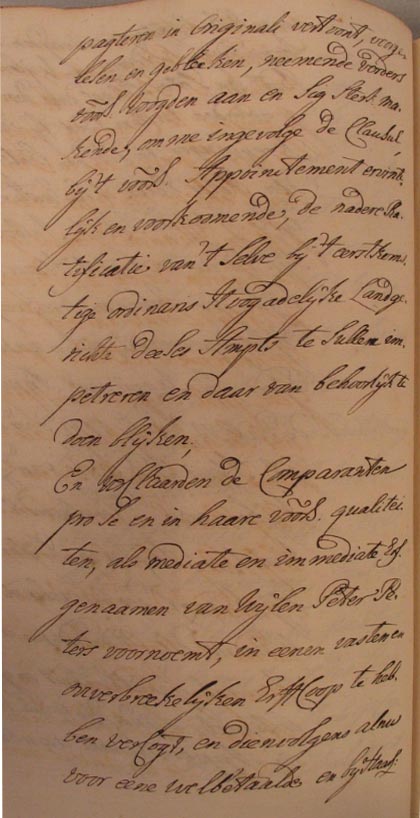 pagteren in originali vertoont, voorge
lesen en gebleeken, neemende vorders
voors voogden aan en Sig Sterk ma
kende, omme ingevolge de Clausul,
bij 't voors. Appointement ervint
lijk en voorkoomende, de nadere Ra
tificatie van 't Selve bij 't eerstkoms
tige ordinaris Hvogadelijke Landge
richte deeses Ampts te Sullen im
petreren en daar van behoorlijk te
doen blijken,
En verklaarden de Comparanten
pro Se en in haare voors. qualitei
ten, als mediate en immediate Erf
genaamen van Wijlen Peter Pe
ters voornoemt, in eenen vasten en
onverbreekelijken Erffkoop te heb
ben verkogt, en dienvolgens alnu
voor eene welbetaalde en